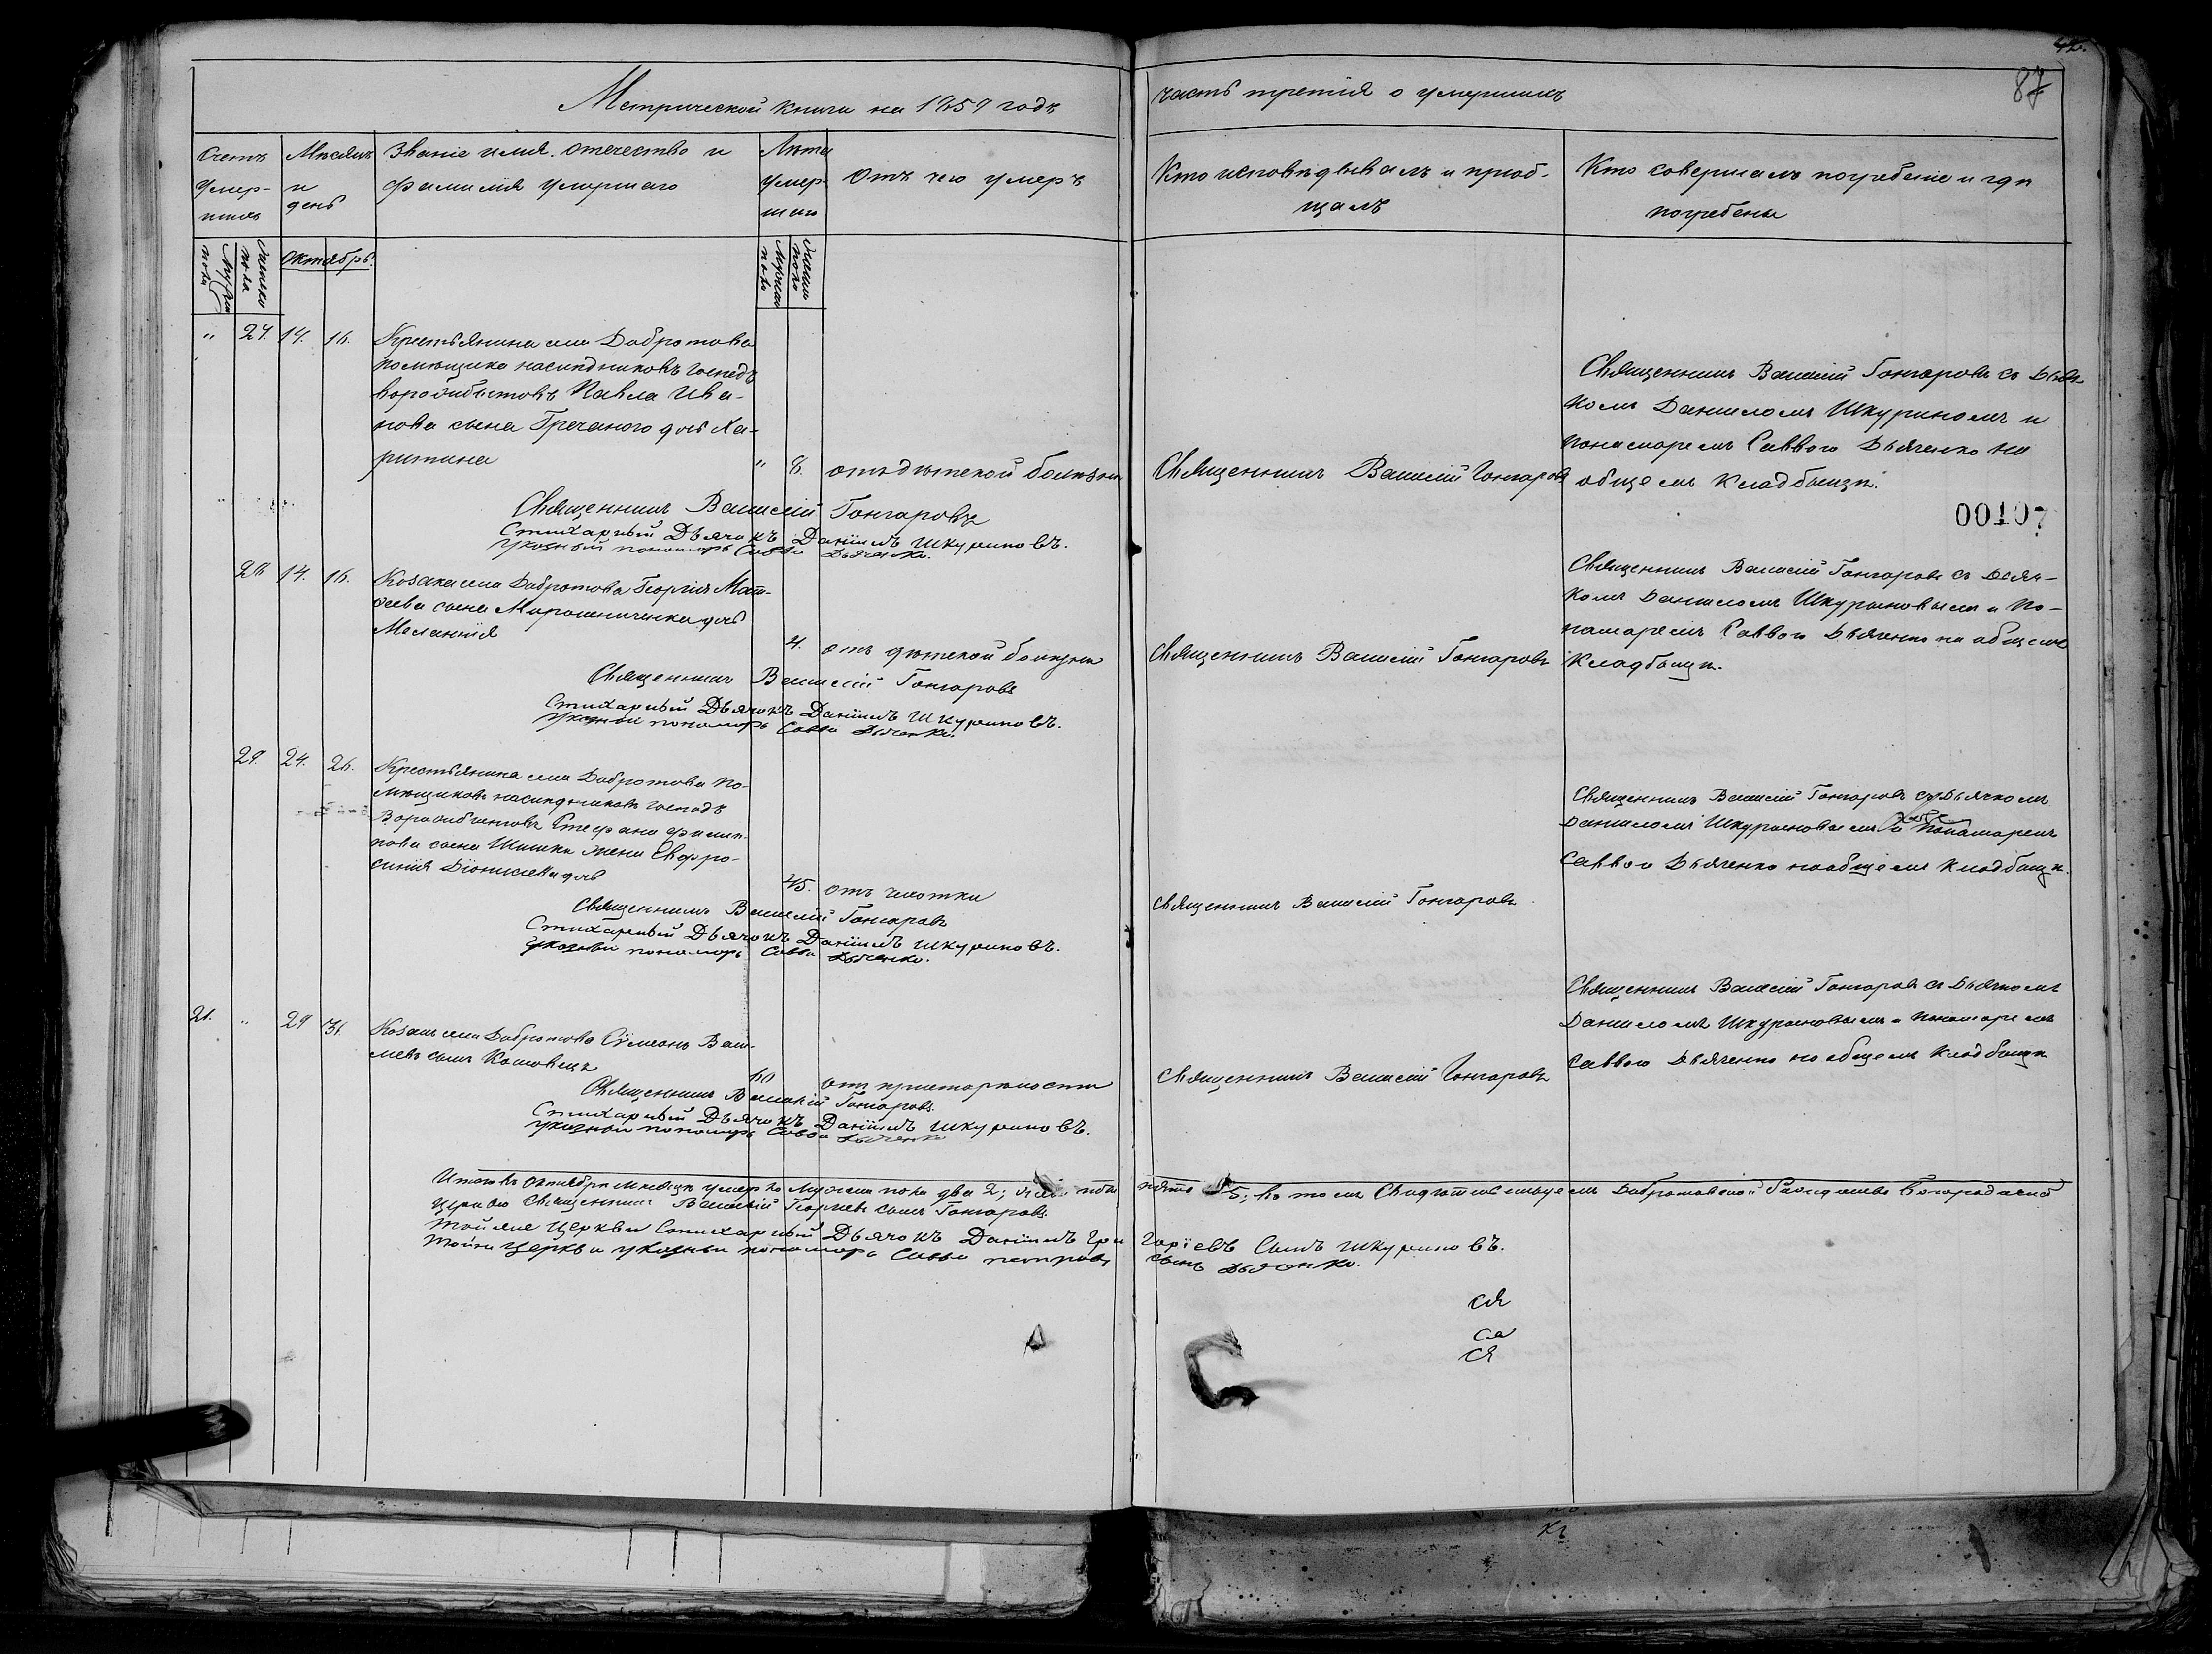 42.
87
Метрической книги на 1859 годъ
часть третія о умершихъ
Счетъ умер-шихъ
Мѣсяцъ и день
Званіе имя. отечество и фамилія умершаго
Лѣта умер-шаго
Отъ чего умеръ
Кто исповѣдывалъ и пріоб-
щалъ
Кто совершалъ погребеніе и гдѣ
погребены
Мужска пола
Женска пола
Октябрь.
Мужска пола
Женска пола
" 27. 14. 16. Крестьянина села Добротова
помѣщика наслѣдниковъ господъ
Павла Ива-
нова сына Гречаного дочь Ха-
ритина " 8. отъ дѣтской болѣзни
Священникъ Василій Гончаровъ
Священникъ Василій Гончаровъ съ Дьяч-
комъ Даниломъ Шкуриномъ и
Понамаремъ Саввою Дьяченко на
общемъ кладбищѣ.
00107
Священникъ Василій Гончаровъ
Стихарный Дьячокъ Даніилъ Шкуриновъ.
Указный пономарь Савва Дьяченко.
28 14. 16. Козака села Добротова Георгія Мат-
ѳеева сына Мирошниченка дочь
Меланія 4. отъ дѣтской болѣзни
Священникъ Василій Гончаровъ
Священникъ Василій Гончаровъ съ Дьяч-
комъ Даниломъ Шкуриновымъ и По-
намаремъ Саввою Дьяченко на общемъ
Кладбищѣ.
Священникъ Василій Гончаровъ
Стихарный Дьячокъ Даніилъ Шкуриновъ.
Указный пономарь Савва Дьяченко.
29. 24. 26. Крестьянина села Добротова По-
мѣщиковъ наслѣдниковъ господъ
Стефана Филип-
пова сына Шишки жена Евфро-
синія Діонисіева дочь 45. отъ чахотки
Священникъ Василій Гончаровъ
Священникъ Василій Гончаровъ съ Дьячкомъ
Даниломъ Шкуриновымъ и Понамаремъ
Саввою Дьяченко на общемъ кладбищѣ.
Священникъ Василій Гончаровъ
Стихарный Дьячокъ Даніилъ Шкуриновъ.
Указный пономарь Савва Дьяченко.
21. " 29 31. Козакъ села Добротова Сѵмеонъ Васи-
ліевъ сынъ 60 отъ престарѣлости
Священникъ Василій Гончаровъ
Священникъ Василій Гончаровъ съ Дьячкомъ
Даниломъ Шкуриновымъ и Понамаремъ
Саввою Дьяченко на общемъ кладбищѣ
Священникъ Василій Гончаровъ.
Стихарный Дьячокъ Даніилъ Шкуриновъ.
Указный пономарь Савва Дьяченко
Итого въ Октябрѣ мѣсяцѣ умерло Мужска пола два 2; пола пять 5; въ томъ Свидѣтельствуемъ Добротовской Рождества Богородиской
церкви Священникъ Василій Георгіевъ сынъ Гончаровъ.
Той же Церкви Стихарный Дьячокъ Даніилъ Григоріевъ Сынъ Шкуриновъ.
Той же Церкви указный пономарь Савва петровъ сынъ Дьяченко.